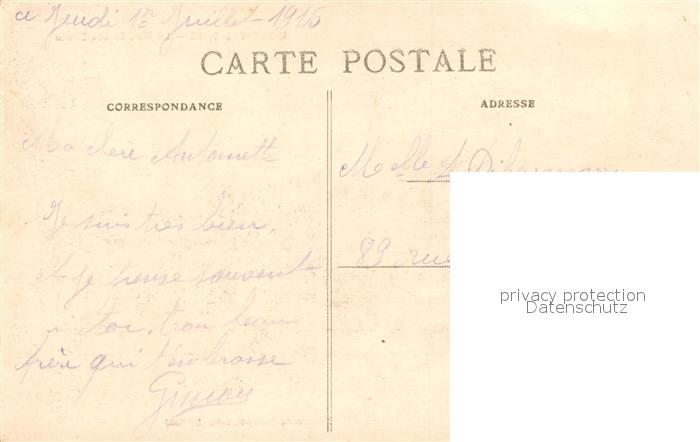 ce Jeudi 1er Juillet 1915
CARTE POSTALE
CORRESPONDANCE
ADRESSE
Ma chère Antoinette
Melle
Je suis très bien,
et je pense souvent
89 rue
à toi, ton beau
frère qui t'embrasse
privacy protection
Datenschutz